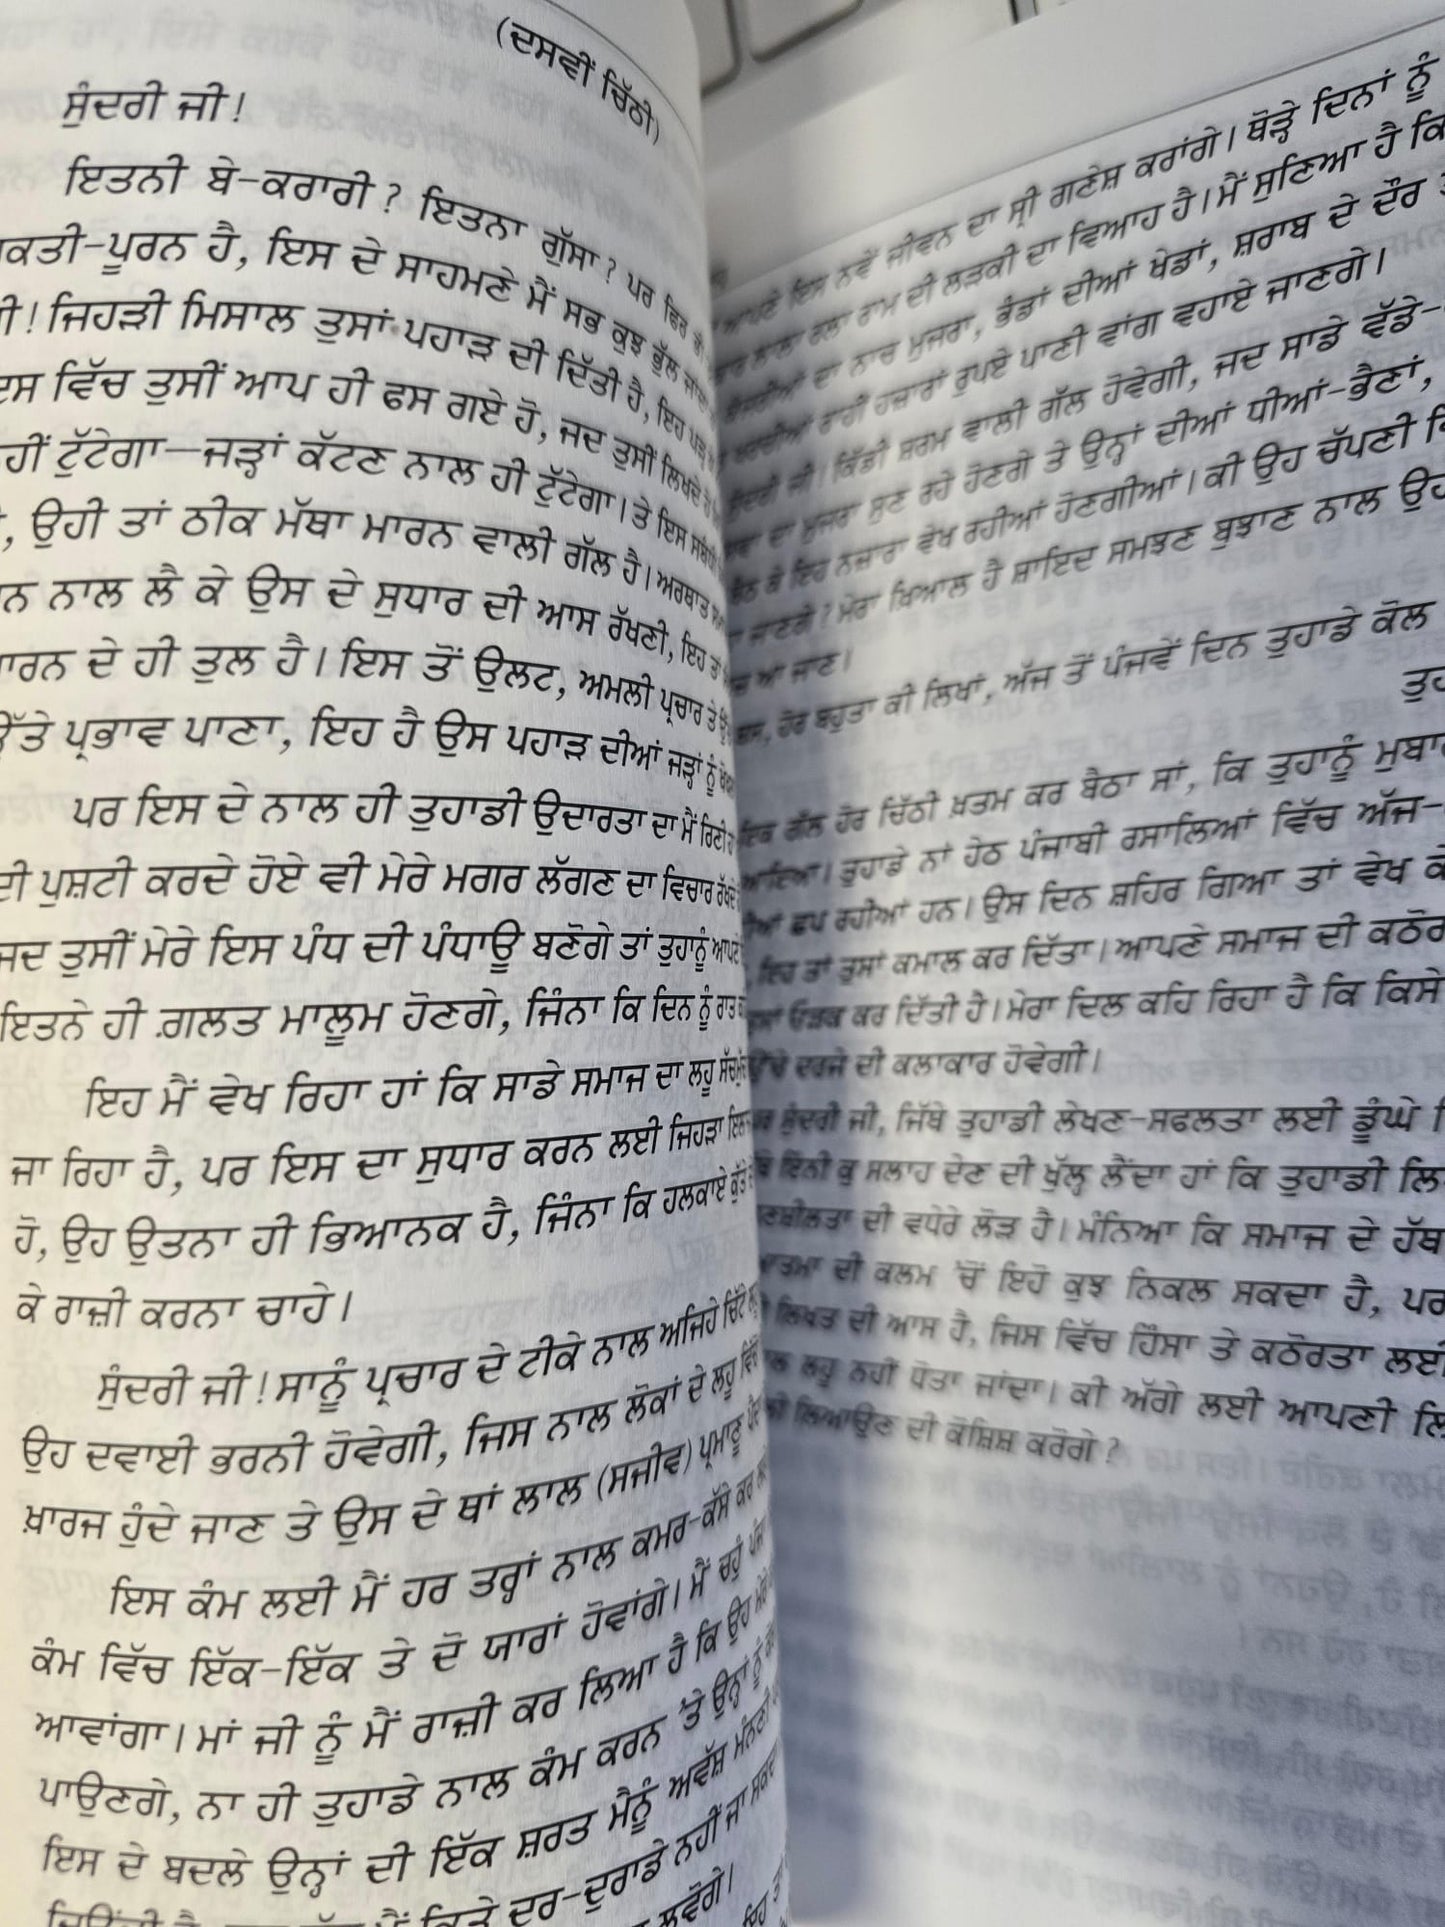 (ਦਸਵੀਂ ਚਿੱਠੀ)
ਸੁੰਦਰੀ ਜੀ!
ਇਤਨੀ ਬੇ-ਕਰਾਰੀ? ਇਤਨਾ ਗੁੱਸਾ? ਪਰ ਫਿਰ ਭੀ
ਕਤੀ-ਪੂਰਨ ਹੈ, ਇਸ ਦੇ ਸਾਹਮਣੇ ਮੈਂ ਸਭ ਕੁਝ ਭੁੱਲ ਜਾਂਦਾ
ਜੀ! ਜਿਹੜੀ ਮਿਸਾਲ ਤੁਸਾਂ ਪਹਾੜ ਦੀ ਦਿੱਤੀ ਹੈ, ਇਹ ਪੜ੍ਹ
ਇਸ ਵਿੱਚ ਤੁਸੀਂ ਆਪ ਹੀ ਫਸ ਗਏ ਹੋ, ਜਦ ਤੁਸੀਂ ਲਿਖਦੇ ਹੋ
ਹੀਂ ਟੁੱਟੇਗਾ—ਜੜ੍ਹਾਂ ਕੱਟਣ ਨਾਲ ਹੀ ਟੁੱਟੇਗਾ। ਤੇ ਇਸ ਸਬੰਧੀ
, ਉਹੀ ਤਾਂ ਠੀਕ ਮੱਥਾ ਮਾਰਨ ਵਾਲੀ ਗੱਲ ਹੈ। ਅਰਥਾਤ
ਨ ਨਾਲ ਲੈ ਕੇ ਉਸ ਦੇ ਸੁਧਾਰ ਦੀ ਆਸ ਰੱਖਣੀ, ਇਹ ਤਾਂ
ਾਰਨ ਦੇ ਹੀ ਤੁਲ ਹੈ। ਇਸ ਤੋਂ ਉਲਟ, ਅਮਲੀ ਪ੍ਰਚਾਰ ਤੇ
ਉੱਤੇ ਪ੍ਰਭਾਵ ਪਾਣਾ, ਇਹ ਹੈ ਉਸ ਪਹਾੜ ਦੀਆਂ ਜੜ੍ਹਾਂ ਨੂੰ
ਪਰ ਇਸ ਦੇ ਨਾਲ ਹੀ ਤੁਹਾਡੀ ਉਦਾਰਤਾ ਦਾ ਮੈਂ ਰਿਣੀ
ਦੀ ਪੁਸ਼ਟੀ ਕਰਦੇ ਹੋਏ ਵੀ ਮੇਰੇ ਮਗਰ ਲੱਗਣ ਦਾ ਵਿਚਾਰ ਰੱਖਦੇ
ਜਦ ਤੁਸੀਂ ਮੇਰੇ ਇਸ ਪੰਧ ਦੀ ਪੰਧਾਊ ਬਣੋਗੇ ਤਾਂ ਤੁਹਾਨੂੰ ਆਪਣੇ
ਇਤਨੇ ਹੀ ਗ਼ਲਤ ਮਾਲੂਮ ਹੋਣਗੇ, ਜਿੰਨਾ ਕਿ ਦਿਨ ਨੂੰ ਰਾਤ
ਇਹ ਮੈਂ ਵੇਖ ਰਿਹਾ ਹਾਂ ਕਿ ਸਾਡੇ ਸਮਾਜ ਦਾ ਲਹੂ ਸੱਚਮੁੱਚ
ਜਾ ਰਿਹਾ ਹੈ, ਪਰ ਇਸ ਦਾ ਸੁਧਾਰ ਕਰਨ ਲਈ ਜਿਹੜਾ
ਹੋ, ਉਹ ਉਤਨਾ ਹੀ ਭਿਆਨਕ ਹੈ, ਜਿੰਨਾ ਕਿ ਹਲਕਾਏ ਕੁੱਤੇ
ਕੇ ਰਾਜ਼ੀ ਕਰਨਾ ਚਾਹੇ।
ਸੁੰਦਰੀ ਜੀ! ਸਾਨੂੰ ਪ੍ਰਚਾਰ ਦੇ ਟੀਕੇ ਨਾਲ ਅਜਿਹੇ ਚਿੱਟੇ
ਉਹ ਦਵਾਈ ਭਰਨੀ ਹੋਵੇਗੀ, ਜਿਸ ਨਾਲ ਲੋਕਾਂ ਦੇ ਲਹੂ ਵਿੱਚੋਂ
ਖ਼ਾਰਜ ਹੁੰਦੇ ਜਾਣ ਤੇ ਉਸ ਦੇ ਥਾਂ ਲਾਲ (ਸਜੀਵ) ਪ੍ਰਮਾਣੂ ਪੈਦਾ
ਇਸ ਕੰਮ ਲਈ ਮੈਂ ਹਰ ਤਰ੍ਹਾਂ ਨਾਲ ਕਮਰ-ਕੱਸੇ ਕਰ
ਕੰਮ ਵਿੱਚ ਇੱਕ-ਇੱਕ ਤੇ ਦੋ ਯਾਰਾਂ ਹੋਵਾਂਗੇ। ਮੈਂ ਚਹੁੰ ਪੰਜਾਂ
ਆਵਾਂਗਾ। ਮਾਂ ਜੀ ਨੂੰ ਮੈਂ ਰਾਜ਼ੀ ਕਰ ਲਿਆ ਹੈ ਕਿ ਉਹ ਮੇਰੇ
ਪਾਉਣਗੇ, ਨਾ ਹੀ ਤੁਹਾਡੇ ਨਾਲ ਕੰਮ ਕਰਨ 'ਤੇ ਉਨ੍ਹਾਂ ਨੂੰ
ਇਸ ਦੇ ਬਦਲੇ ਉਨ੍ਹਾਂ ਦੀ ਇੱਕ ਸ਼ਰਤ ਮੈਨੂੰ ਅਵੱਸ਼ ਮੰਨਣੀ
ਮੈਂ ਕਿਤੇ ਦੂਰ-ਦੁਰਾਡੇ ਨਹੀਂ ਜਾ ਸਕਦਾ
ਲਵੋਗੇ।
ਆਪਣੇ ਇਸ ਨਵੇਂ ਜੀਵਨ ਦਾ ਸ੍ਰੀ ਗਣੇਸ਼ ਕਰਾਂਗੇ। ਥੋੜ੍ਹੇ ਦਿਨਾਂ ਨੂੰ
ਲਾਲਾ ਰਲਾ ਰਾਮ ਦੀ ਲੜਕੀ ਦਾ ਵਿਆਹ ਹੈ। ਮੈਂ ਸੁਣਿਆ ਹੈ ਕਿ
ਦਾ ਨਾਚ ਮੁਜਰਾ, ਭੰਡਾਂ ਦੀਆਂ ਖੇਡਾਂ, ਸ਼ਰਾਬ ਦੇ ਦੌਰ
ਰਾਹੀਂ ਹਜ਼ਾਰਾਂ ਰੁਪਏ ਪਾਣੀ ਵਾਂਗ ਵਹਾਏ ਜਾਣਗੇ।
ਸੁੰਦਰੀ ਜੀ! ਕਿੱਡੀ ਸ਼ਰਮ ਵਾਲੀ ਗੱਲ ਹੋਵੇਗੀ, ਜਦ ਸਾਡੇ ਵੱਡੇ-
ਦਾ ਮੁਜਰਾ ਸੁਣ ਰਹੇ ਹੋਣਗੇ ਤੇ ਉਨ੍ਹਾਂ ਦੀਆਂ ਧੀਆਂ-ਭੈਣਾਂ,
ਬੈਠ ਕੇ ਇਹ ਨਜ਼ਾਰਾ ਵੇਖ ਰਹੀਆਂ ਹੋਣਗੀਆਂ। ਕੀ ਉਹ ਚੱਪਣੀ
ਜਾਣਗੇ? ਮੇਰਾ ਖ਼ਿਆਲ ਹੈ ਸ਼ਾਇਦ ਸਮਝਣ ਬੁਝਾਣ ਨਾਲ ਉਹ
ਆ ਜਾਣ।
ਬਸ, ਹੋਰ ਬਹੁਤਾ ਕੀ ਲਿਖਾਂ, ਅੱਜ ਤੋਂ ਪੰਜਵੇਂ ਦਿਨ ਤੁਹਾਡੇ ਕੋਲ
ਤੁਹਾ
ਇਕ ਗੱਲ ਹੋਰ ਚਿੱਠੀ ਖ਼ਤਮ ਕਰ ਬੈਠਾ ਸਾਂ, ਕਿ ਤੁਹਾਨੂੰ ਮੁਬਾ
ਆਇਆ। ਤੁਹਾਡੇ ਨਾਂ ਹੇਠ ਪੰਜਾਬੀ ਰਸਾਲਿਆਂ ਵਿੱਚ ਅੱਜ-
ਛਪ ਰਹੀਆਂ ਹਨ। ਉਸ ਦਿਨ ਸ਼ਹਿਰ ਗਿਆ ਤਾਂ ਵੇਖ ਕੇ
ਇਹ ਤਾਂ ਤੁਸਾਂ ਕਮਾਲ ਕਰ ਦਿੱਤਾ। ਆਪਣੇ ਸਮਾਜ ਦੀ ਕਠੋਰ
ਤੁਸਾਂ ਓੜਕ ਕਰ ਦਿੱਤੀ ਹੈ। ਮੇਰਾ ਦਿਲ ਕਹਿ ਰਿਹਾ ਹੈ ਕਿ ਕਿਸੇ
ਉੱਚੇ ਦਰਜੇ ਦੀ ਕਲਾਕਾਰ ਹੋਵੇਗੀ।
ਪਰ ਸੁੰਦਰੀ ਜੀ, ਜਿੱਥੇ ਤੁਹਾਡੀ ਲੇਖਣ-ਸਫਲਤਾ ਲਈ ਡੂੰਘੇ
ਇੰਨੀ ਕੁ ਸਲਾਹ ਦੇਣ ਦੀ ਖੁੱਲ੍ਹ ਲੈਂਦਾ ਹਾਂ ਕਿ ਤੁਹਾਡੀ ਲਿ
ਦੀ ਵਧੇਰੇ ਲੋੜ ਹੈ। ਮੰਨਿਆ ਕਿ ਸਮਾਜ ਦੇ ਹੱਥ
ਆਤਮਾ ਦੀ ਕਲਮ 'ਚੋਂ ਇਹੋ ਕੁਝ ਨਿਕਲ ਸਕਦਾ ਹੈ, ਪਰ
ਲਿਖਤ ਦੀ ਆਸ ਹੈ, ਜਿਸ ਵਿੱਚ ਹਿੰਸਾ ਤੇ ਕਠੋਰਤਾ ਲਈ
ਲਹੂ ਨਹੀਂ ਧੋਤਾ ਜਾਂਦਾ। ਕੀ ਅੱਗੇ ਲਈ ਆਪਣੀ ਲਿ
ਲਿਆਉਣ ਦੀ ਕੋਸ਼ਿਸ਼ ਕਰੋਗੇ?